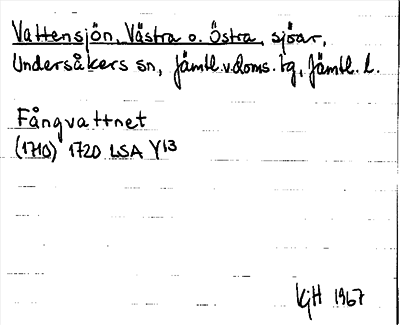 Vattensjön, Västra o. Östra, sjöar,
Undersåkers sn, Jämtl. v. doms. tg, Jämtl. l.
Fångvattnet
(1710) 1720 LSA Y13
KjH 1967